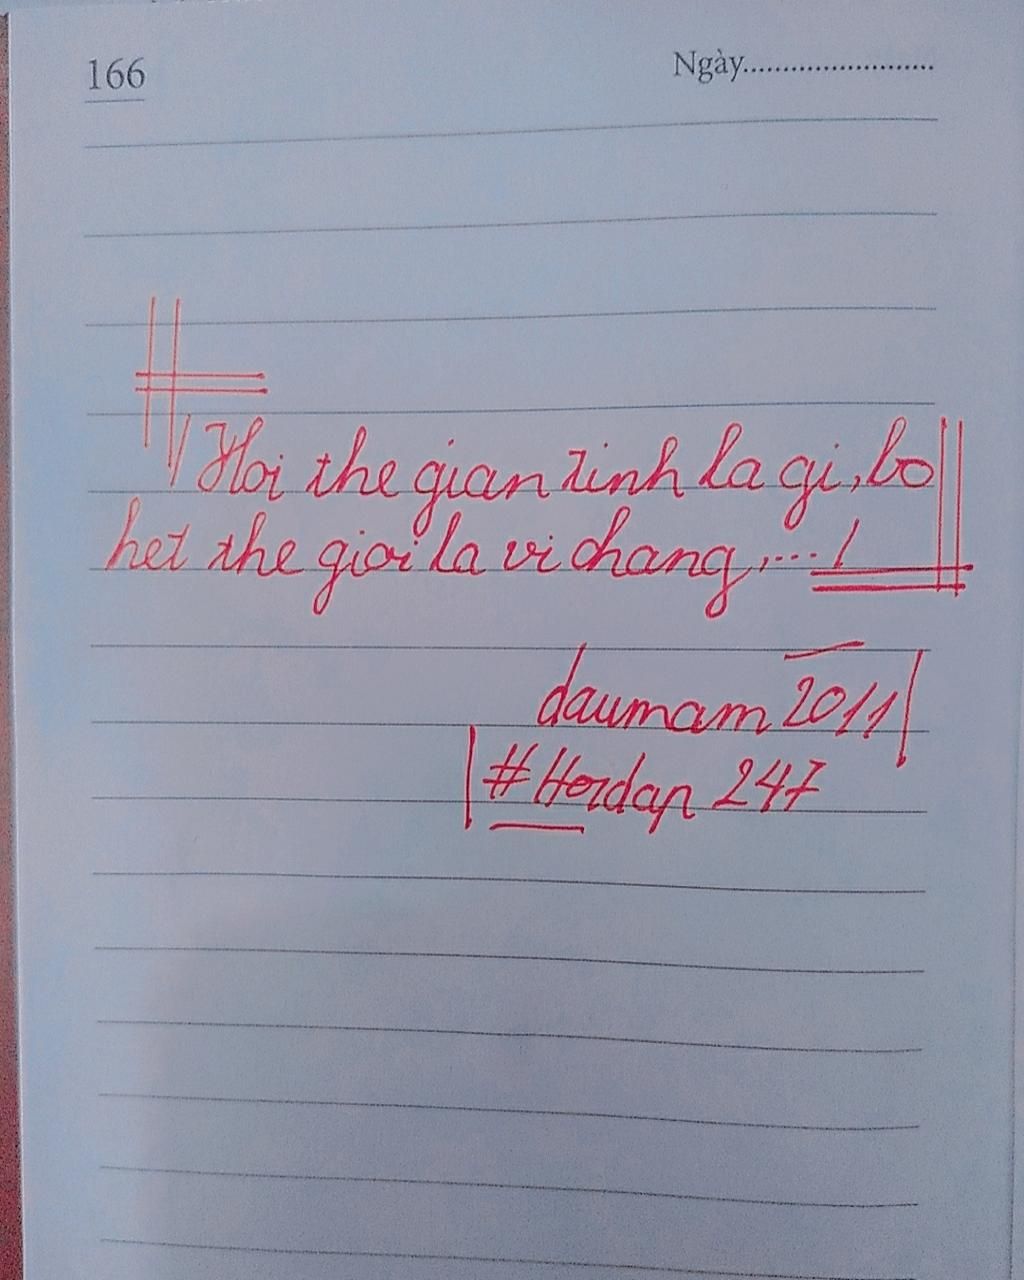 166
Ngày........................
Hoi the gian tinh la gi, bo
het the gioi la vi chang,...!
daumam 2011
#Hoidap 247